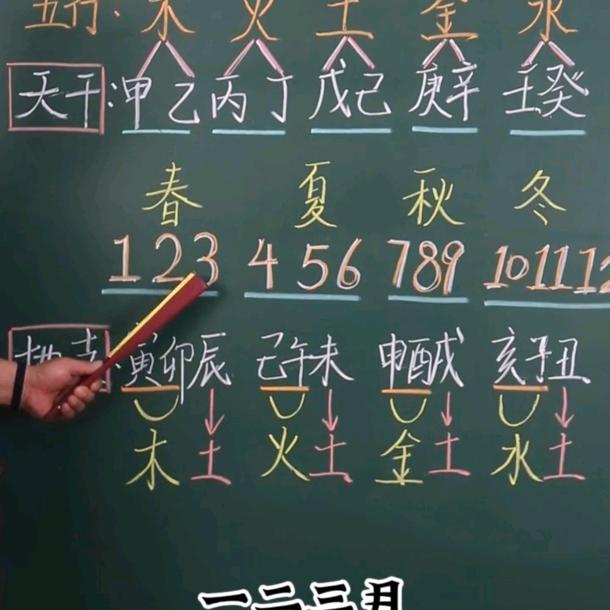 五行: 木 火 土 金 水
天干: 甲乙 丙丁 戊己 庚辛 壬癸
春 夏 秋 冬
1 2 3 4 5 6 7 8 9 10 11 12
地支: 寅卯辰 己午未 申酉戌 亥子丑
木 土 火 土 金 土 水 土
一二三月